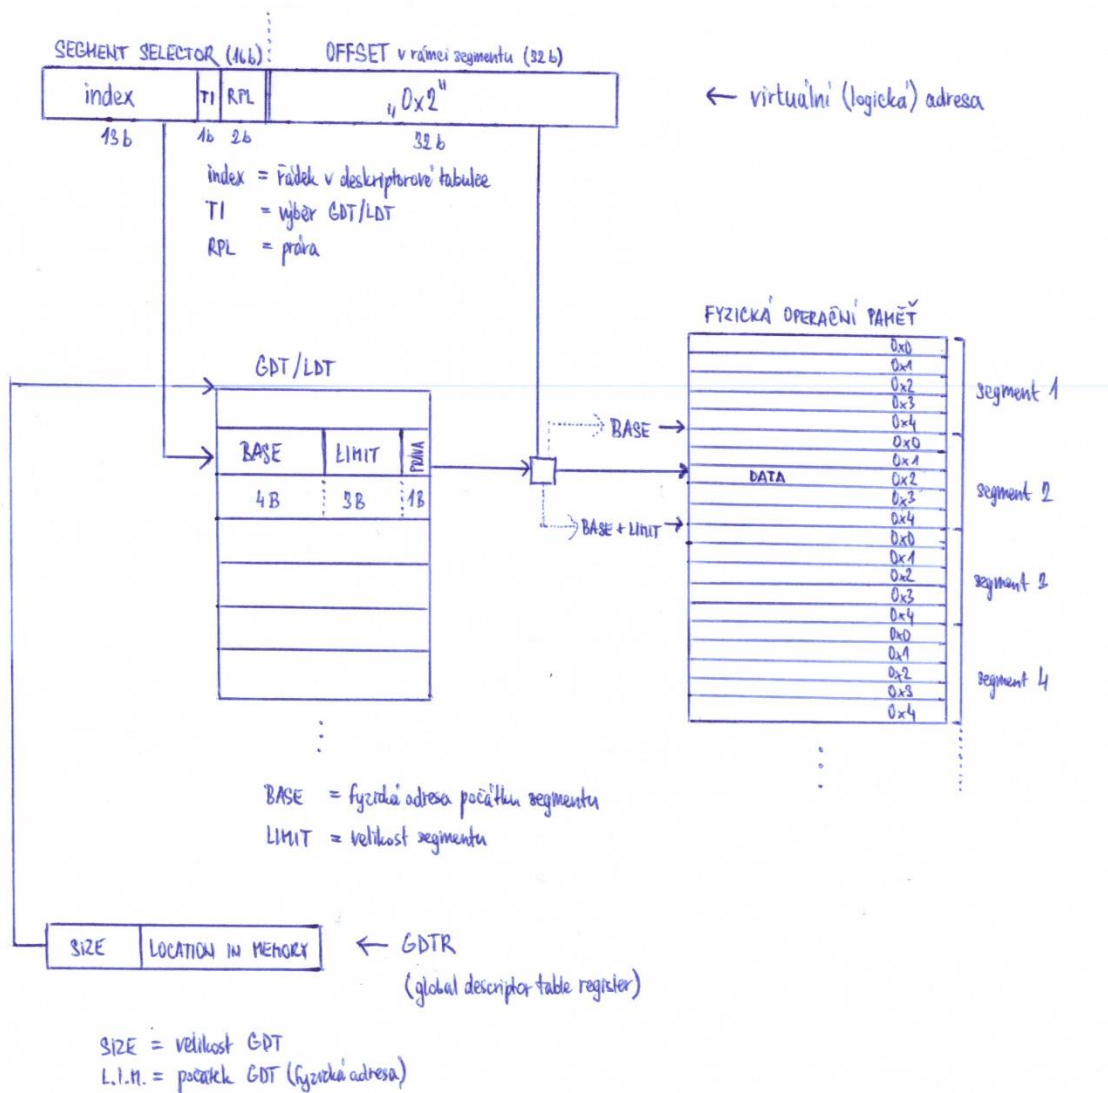 SEGMENT SELECTOR (16b) OFFSET v rámci segmentu (32b)
index TI RPL „0x2" ← virtuální (logická) adresa
13b 1b 2b 32b
index = řádek v deskriptorové tabulce
TI = výběr GDT/LDT
RPL = práva
FYZICKÁ OPERAČNÍ PAMĚŤ
GDT/LDT
BASE LIMIT PRÁVA
4B 3B 1B
BASE
BASE + LIMIT
0x0
0x1
0x2
0x3
0x4
segment 1
0x0
0x1
DATA 0x2
0x3
0x4
segment 2
0x0
0x1
0x2
0x3
0x4
segment
0x0
0x1
0x2
0x3
0x4
segment 4
BASE = fyzická adresa počátku segmentu
LIMIT = velikost segmentu
SIZE LOCATION IN MEMORY ← GDTR
(global descriptor table register)
SIZE = velikost GDT
L.I.M. = počátek GDT (fyzická adresa)